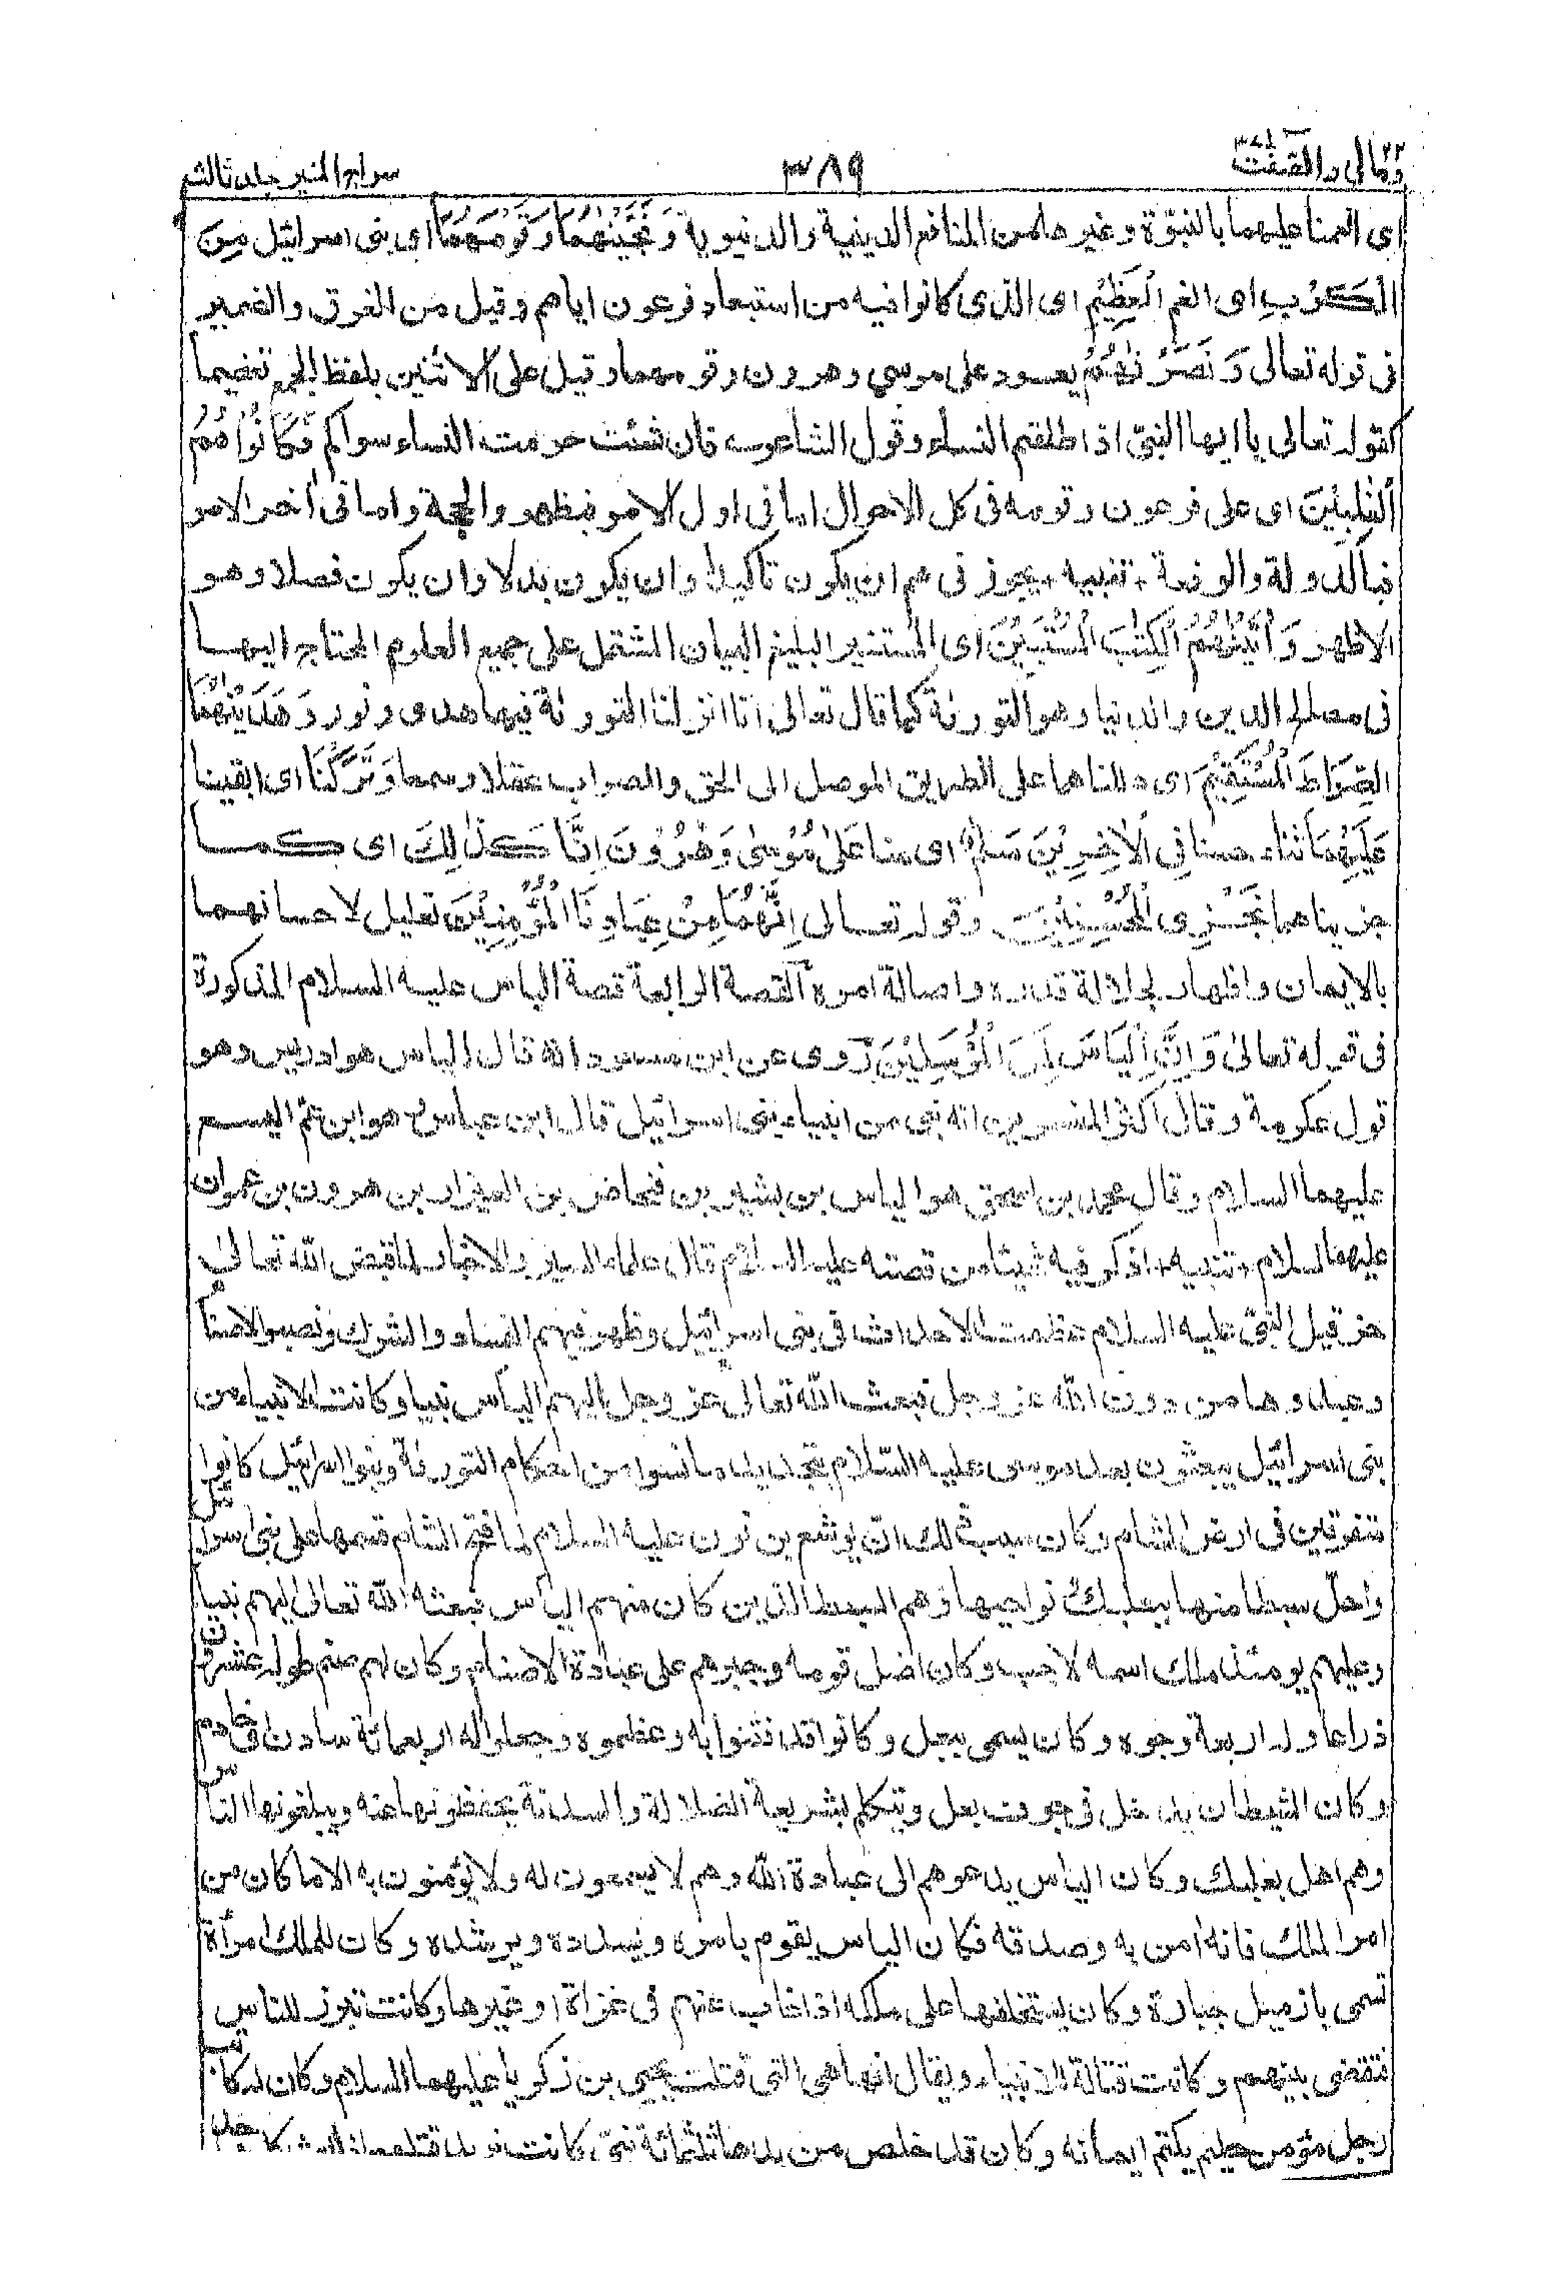 ومالى ٢٣ والصّٰفّٰت ٣٧
٣٨٩
سراج المنير جلد ثالث
اى انعمنا عليهما بالنبوّة وغيرها من المنافع الدينية والدنيوية وَنَجَّيْنٰهُمَا وَقَوْمَهُمَا اى بنى اسرائيل مِنَ
الْكَرْبِ اى الغم الْعَظِيْمِ اى الذى كانوا فيه من استبعاد فرعون اياهم وقيل من الغرق والضمير
فى قوله تعالى وَنَصَرْنٰهُمْ يعود على موسى وهرون وقومهما وقيل على الاثنين بلفظ الجمع تعظيما
كقوله تعالى يا ايها النبىّ اذا طلقتم النساء وقول الشاعر فان شئت حرمت النساء سواكم فَكَانُوْا هُمُ
الْغٰلِبِيْنَ اى على فرعون وقومه فى كل الاحوال اما فى اول الامر فبظهور الحجة واما فى اٰخر الامر
فبالدولة والرفعة + تنبيه + يجوز فى هم ان يكون تاكيدا وان يكون بدلا وان يكون فصلا وهو
الاظهر وَاٰتَيْنٰهُمَا الْكِتٰبَ الْمُسْتَبِيْنَ اى المستنير البليغ البيان المشتمل على جميع العلوم المحتاج اليها
فى مصالح الدين والدنيا وهو التورٰىة كما قال تعالى انا انزلنا التورىٰة فيها هدى ونور وَهَدَيْنٰهُمَا
الصِّرَاطَ الْمُسْتَقِيْمَ اى دللناهما على الطريق الموصل الى الحق والصواب عقلا وسمعا وَتَرَكْنَا اى ابقينا
عَلَيْهِمَا ثناء حسنا فِى الْاٰخِرِيْنَ سَلٰمٌ اى منا عَلٰى مُوْسٰى وَهٰرُوْنَ اِنَّا كَذٰلِكَ اى كما
جزيناهما نَجْزِى الْمُحْسِنِيْنَ وقوله تعالى اِنَّهُمَا مِنْ عِبَادِنَا الْمُؤْمِنِيْنَ تعليل لاحسانهما
بالايمان واظهار لجلالة قدره واصالة امره اَلقصة الرابعة قصة الياس عليه السلام المذكورة
فى قوله تعالىٰ وَاِنَّ اِلْيَاسَ لَمِنَ الْمُرْسَلِيْنَ رَوى عن ابن مسعود انه قال الياس هو ادريس وهو
قول عكرمة وقال اكثر المفسرين انه نبى من انبياء بنى اسرائيل قال ابن عباس هو ابن عمّ اليسع
عليهما السلام وقال محمد بن اسحق هو الياس بن بشير بن فنحاص بن العيزار بن هرون بن عمران
عليهما السلام + تنبيه + اذكر فيه شيئا من قصته عليه السلام قال علماء السير والاخبار لما قبض الله تعالىٰ
حزقيل النبىّ عليه السلام عظمت الاحداث فى بنى اسرائيل وظهر فيهم الفساد والشرك ونصبوا الاصنام
وعبدوها من دون الله عز وجل فبعث الله تعالى عز وجل اليهم الياس نبيا وكانت الانبياء من
بنى اسرائيل يبعثون بعد موسى عليه السّلام بتجديد ما نسوا من احكام التورىٰة وبنوا اسرائيل كانوا
متفرقين فى ارض الشام وكان سبب ذلك انّ يوشع بن نون عليه السلام لما فتح الشام قسمها على بنى اسرائيل
واحلّ سبطا منها ببعلبك ونواحيها وهم السبط الذين كان منهم الياس فبعثه الله تعالىٰ اليهم نبيا
وعليهم يومئذ ملك اسمه لاجب وكان اضل قومه وجبرهم على عبادة الاصنام وكان لهم صنم طوله عشرون
ذراعا وله اربعة وجوه وكان يسمى ببعل وكانوا قد فتنوا به وعظموه وجعلوا له اربعمائة سادن اى خادم
وكان الشيطان يدخل فى جوف بعل ويتكلم بشريعة الضلالة والسدنة يحفظونها عنه ويبلغونها الناس
وهم اهل بعلبك وكان الياس يدعوهم الى عبادة الله وهم لا يسمعون له ولا يؤمنون به الا ما كان من
امر الملك فانه اٰمن به وصدقه فكان الياس يقوم بامره ويسدده ويرشده وكان للملك امرأة
تسمى بازميل جبارة وكان يستخلفها على ملكه اذا غاب عنهم فى غزاة او غيرها وكانت تبرز للناس
فتقضى بينهم وكانت قتالة للانبياء ويقال انها هى التى قتلت يحيى بن زكريا عليهما السلام وكان له كاتب
رجل مؤمن حليم يكتم ايمانه وكان قد خلص من يدها ثلثمائة نبىّ كانت تريد قتلهم